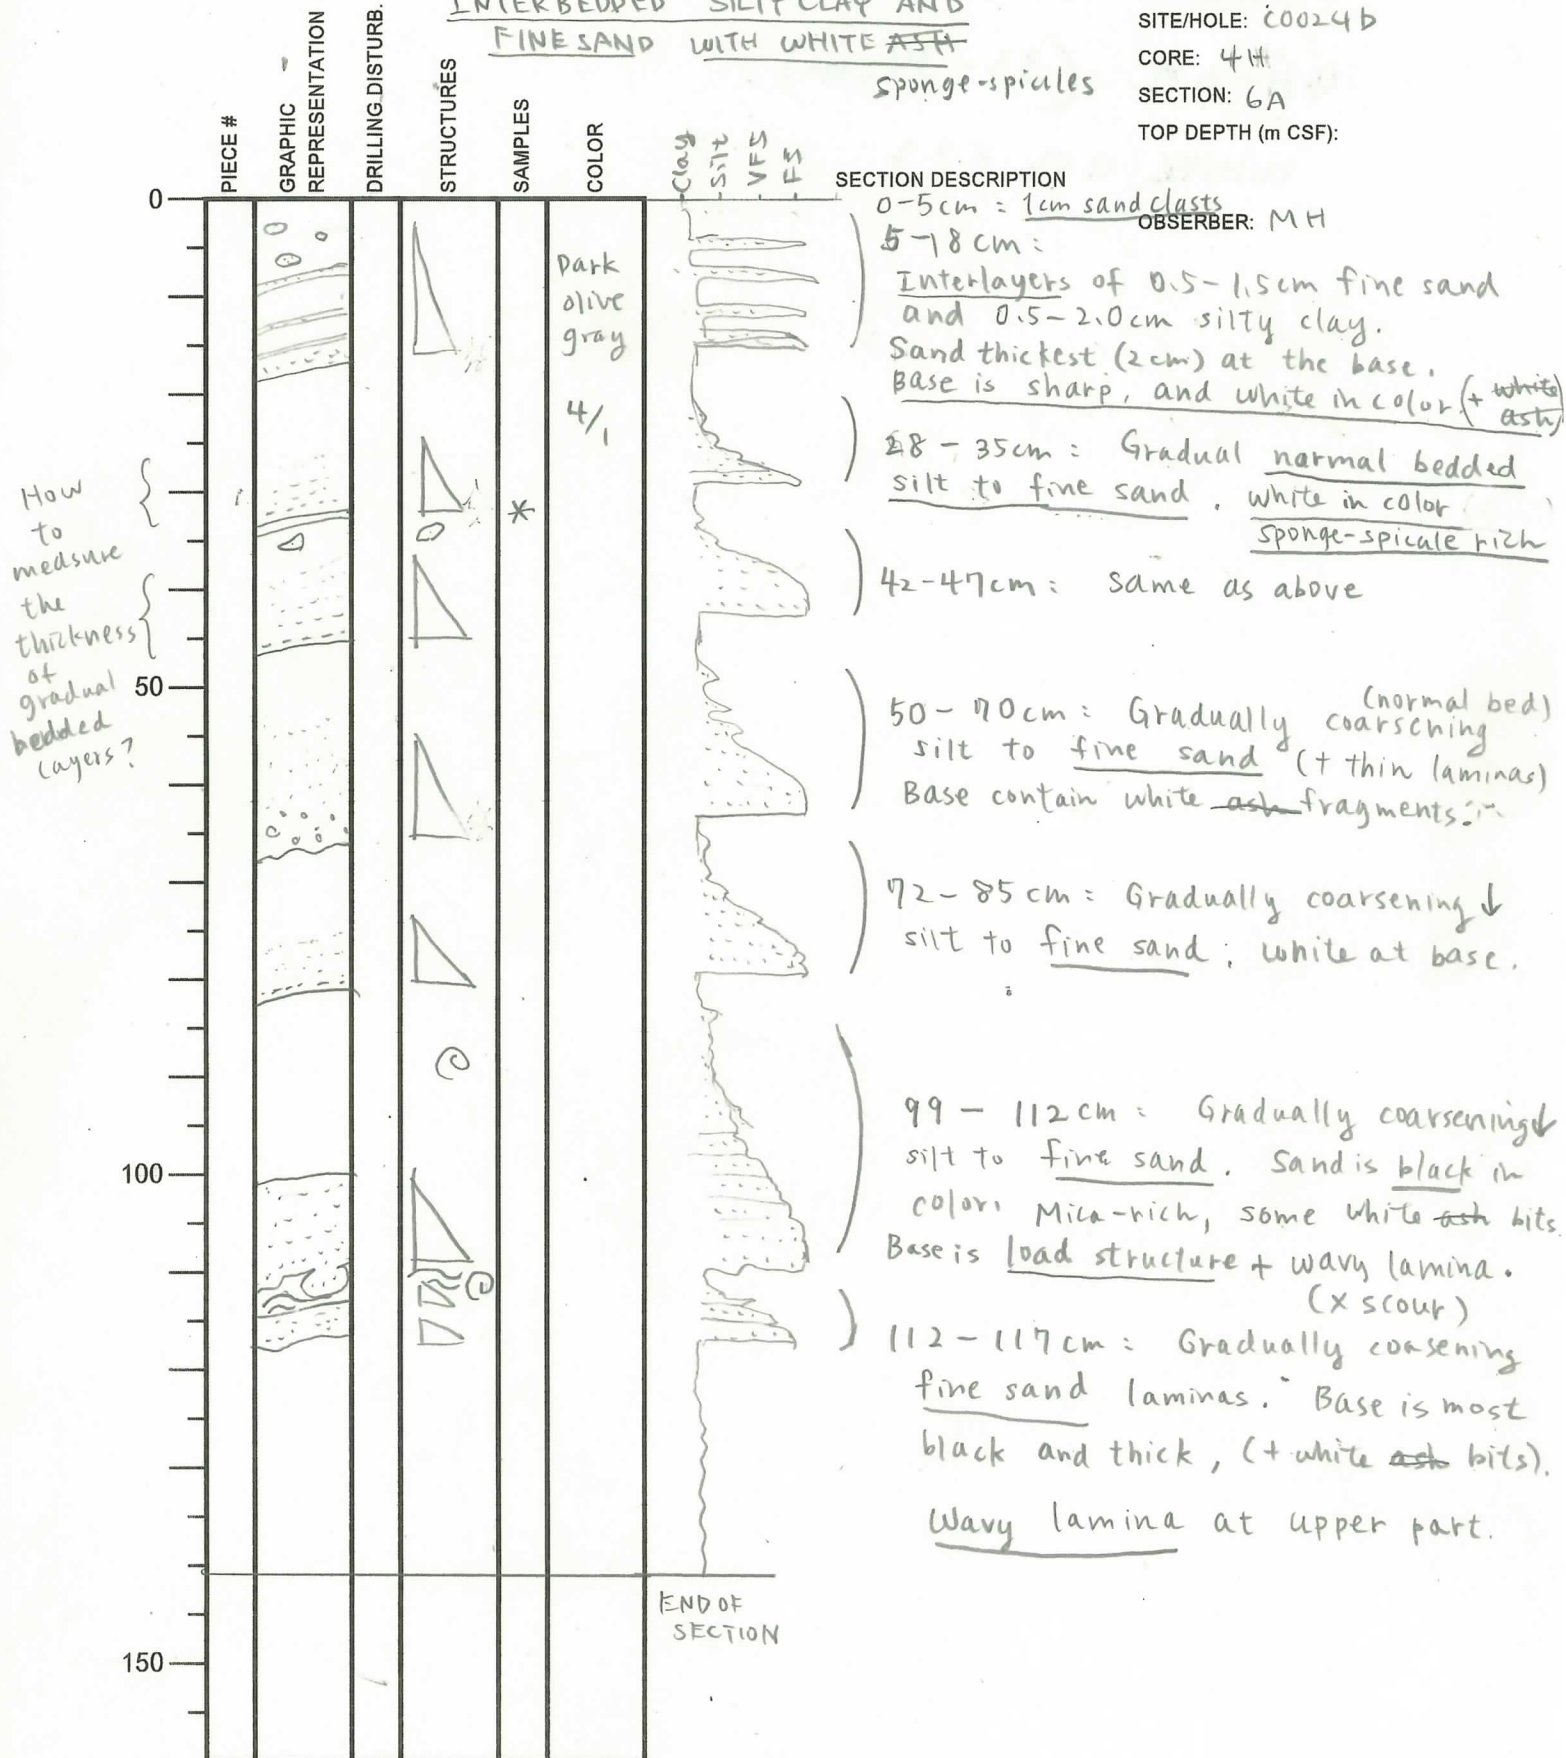 INTERBEDDED SILTY CLAY AND
FINE SAND WITH WHITE ASH
sponge-spicules
SITE/HOLE: C0024D
CORE: 4H
SECTION: 6A
TOP DEPTH (m CSF):
OBSERBER: MH
PIECE #
GRAPHIC REPRESENTATION
DRILLING DISTURB.
STRUCTURES
SAMPLES
COLOR
Clay
Silt
VFS
FS
SECTION DESCRIPTION
0
50
100
150
Dark
olive
gray
4/1
*
How
to
measure
the
thickness
of
gradual
bedded
layers?
0-5cm = 1cm sand clasts
5-18cm:
Interlayers of 0.5-1.5cm fine sand
and 0.5-2.0cm silty clay.
Sand thickest (2cm) at the base.
Base is sharp, and white in color (+ white
ash)
28-35cm: Gradual normal bedded
silt to fine sand. white in color
sponge-spicule rich
42-47cm: same as above
(normal bed)
50-70cm: Gradually coarsening
silt to fine sand (+ thin laminas)
Base contain white ash fragments.
72-85cm: Gradually coarsening ↓
silt to fine sand; white at base.
99-112cm: Gradually coarsening ↓
silt to fine sand. Sand is black in
color. Mica-rich, some white ash bits.
Base is load structure + wavy lamina.
(x scour)
112-117cm: Gradually coasening
fine sand laminas. Base is most
black and thick, (+ white ash bits).
Wavy lamina at upper part.
END OF
SECTION